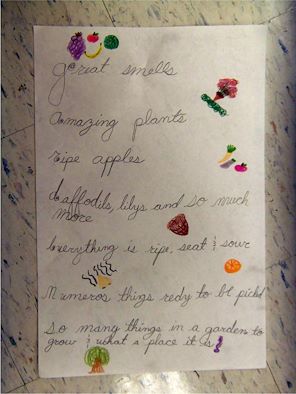 Great smells
Amazing plants
Ripe apples
daffodils, lilys and so much
more
Everything is ripe, seat & sour
Numeros things redy to be pickd
So many things in a garden to
grow & what a place it is